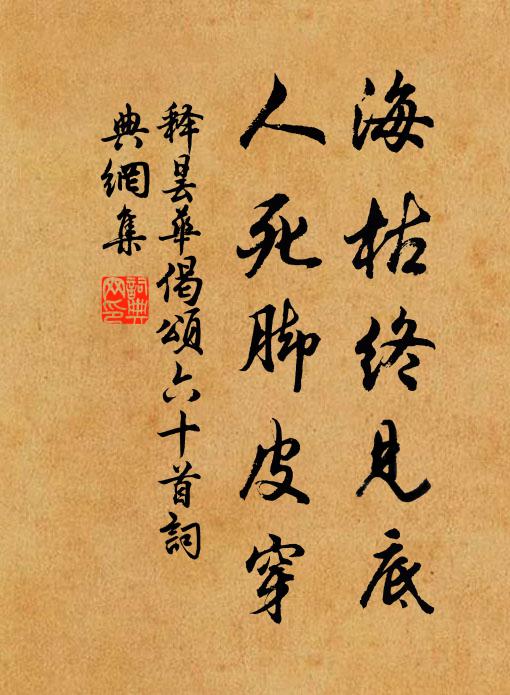 海枯终見底
人死脚皮穿
释曇華偈頌六十首詞
典網集
詞典
网印